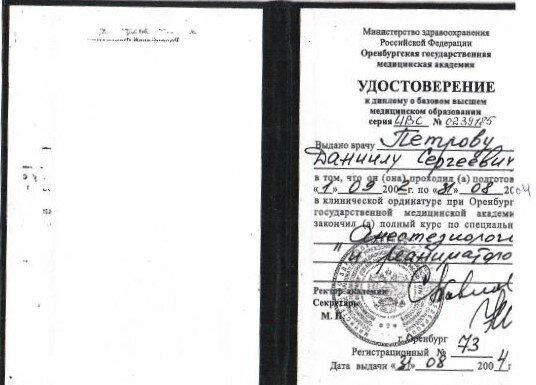 Министерство здравоохранения
Российской Федерации
Оренбургская государственная
медицинская академия
УДОСТОВЕРЕНИЕ
к диплому о базовом высшем
медицинском образовании
серия ЦВС № 0239185
Выдано врачу Петрову
Даниилу Сергеевич
в том, что он (она) проходил (а) подготов
«1» 09 2002 г. по «31» 08 2004
в клинической ординатуре при Оренбург
государственной медицинской академи
закончил (а) полный курс по специальн
Анестезиологи
и реаниматоло
Ректор академии
Секретарь
М. П.
г. Оренбург
Регистрационный № 73
Дата выдачи «31» 08 2004 г